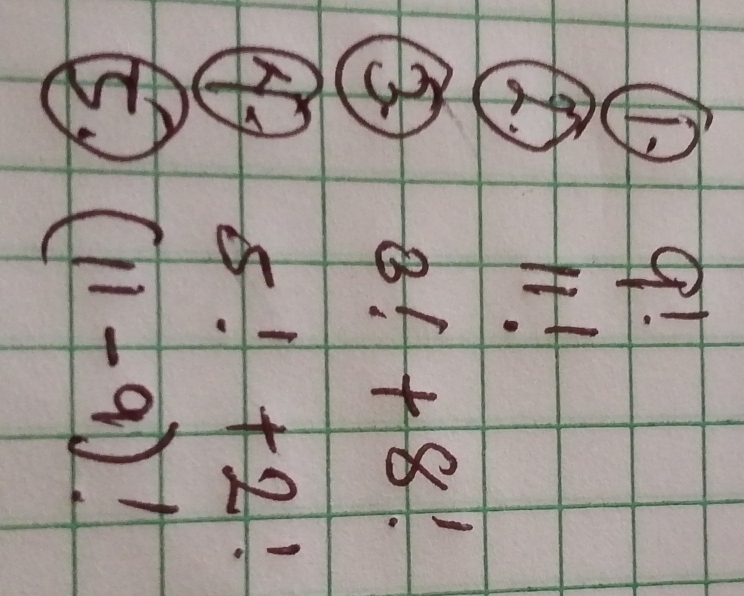 1. 9!
2. 11!
3. 8! + 8!
4. 5! + 2!
5. (11 - 9)!